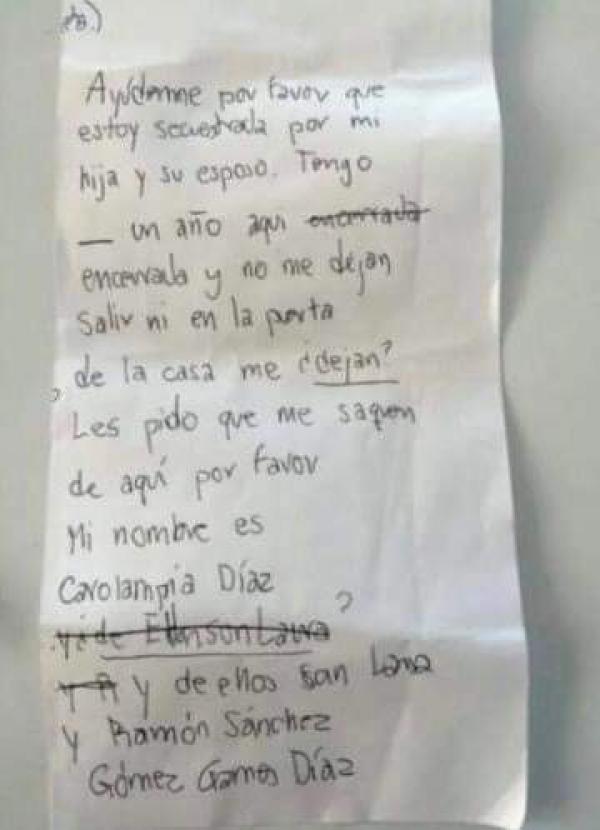 Ayúdenme por favor que
estoy secuestrada por mi
hija y su esposo. Tengo
_ un año aqui encerrada
encerrada y no me dejan
Salir ni en la puerta
de la casa me ¿dejan?
Les pido que me saquen
de aquí por favor
Mi nombre es
Carolampia Díaz
?
y de ellos son Laura
y Ramón Sánchez
Gómez Games Díaz